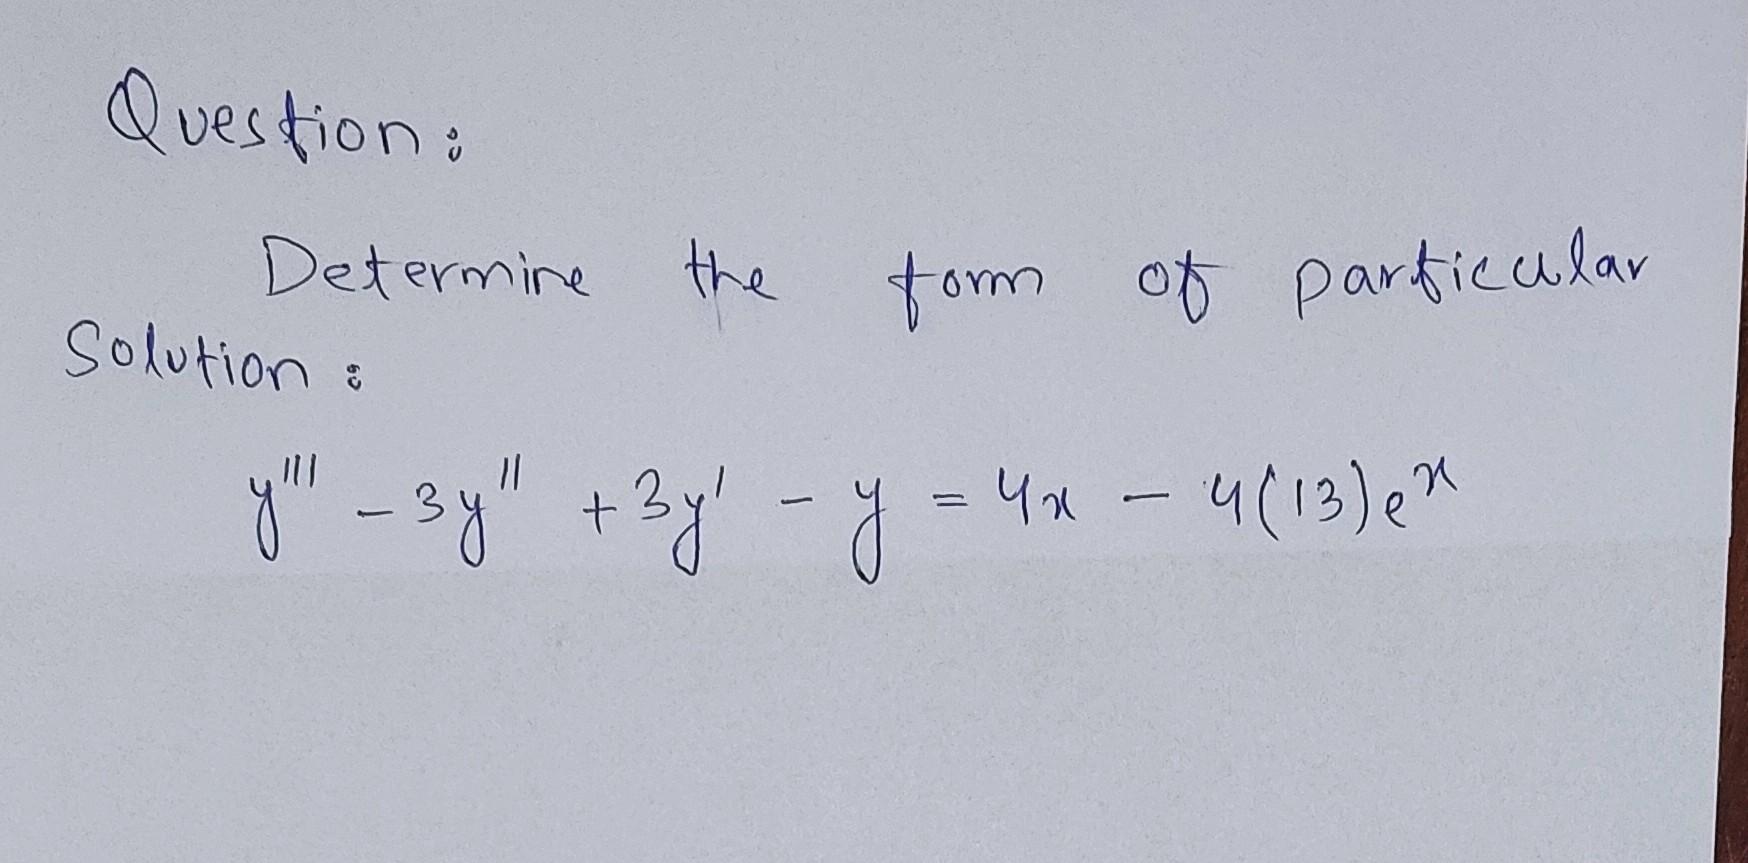 Question:
Determine the form of particular
Solution:
y''' - 3y'' + 3y' - y = 4x - 4(13)e^x